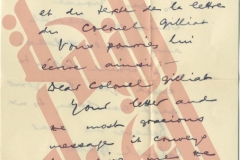 et du texte de la lettre
du Colonel Gilliat
Vous pourriez lui
écrire ainsi –
Dear Colonel Gilliat
Your letter and
the most gracious
message it conveys